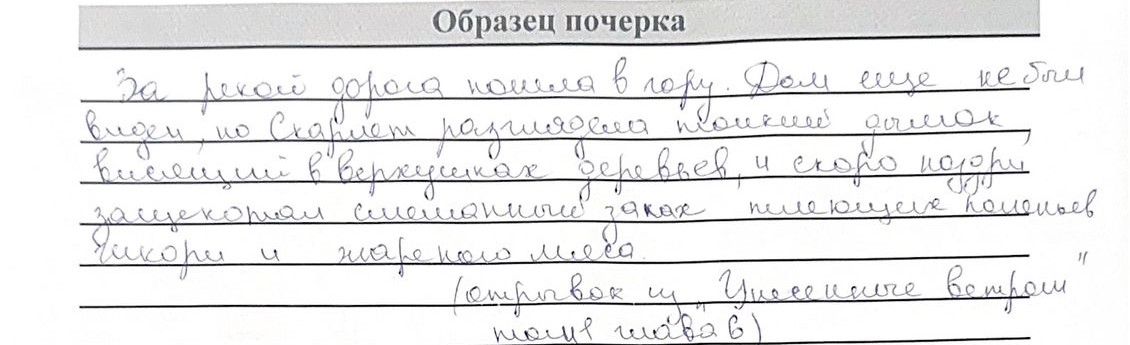 Образец почерка
За рекой дорога пошла в гору. Дом еще не был
виден, но Скарлет разглядела тонкий дымок,
висящий в верхушках деревьев, и скоро ноздри
защекотал смешанный запах тлеющих поленьев
гикори и жареного мяса.
(отрывок из "Унесенные ветром"
том 1 глава 6)